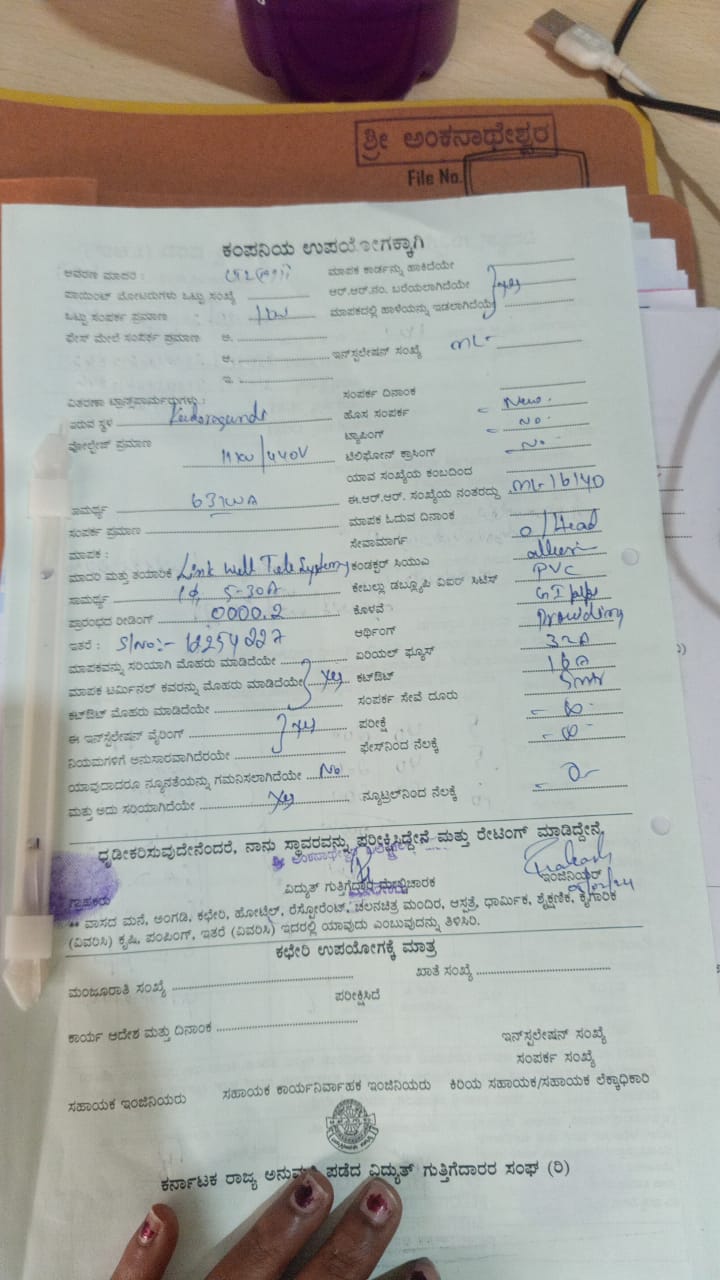 ಶ್ರೀ ಅಂಕನಾಥೇಶ್ವರ
File No.
ಕಂಪನಿಯ ಉಪಯೋಗಕ್ಕಾಗಿ
ಆವರಣ ಮಾದರಿ : ಮಾಪಕ ಕಾರ್ಡನ್ನು ಹಾಕಿದೆಯೇ
ಪಾಯಿಂಟ್ ಮೋಟರುಗಳು ಒಟ್ಟು ಸಂಖ್ಯೆ ಆರ್.ಆರ್.ನಂ. ಬರೆಯಲಾಗಿದೆಯೇ yes
ಒಟ್ಟು ಸಂಪರ್ಕ ಪ್ರಮಾಣ : 1kw ಮಾಪಕದಲ್ಲಿ ಹಾಳೆಯನ್ನು ಇಡಲಾಗಿದೆಯೇ
ಫೇಸ್ ಮೇಲೆ ಸಂಪರ್ಕ ಪ್ರಮಾಣ ಅ.
ಆ. ಇನ್‌ಸ್ಟಲೇಷನ್ ಸಂಖ್ಯೆ ML-
ಇ.
ವಿತರಣಾ ಟ್ರಾನ್ಸ್‌ಫಾರ್ಮರುಗಳು : ಸಂಪರ್ಕ ದಿನಾಂಕ
ಇರುವ ಸ್ಥಳ ಹೊಸ ಸಂಪರ್ಕ - New.
ವೋಲ್ಟೇಜ್ ಪ್ರಮಾಣ 11KV/440V ಟ್ಯಾಪಿಂಗ್ - No.
ಟೆಲಿಫೋನ್ ಕ್ರಾಸಿಂಗ್ - No.
ಯಾವ ಸಂಖ್ಯೆಯ ಕಂಬದಿಂದ
ಸಾಮರ್ಥ್ಯ 63KVA ಈ.ಆರ್.ಆರ್. ಸಂಖ್ಯೆಯ ನಂತರದ್ದು ML-16140
ಸಂಪರ್ಕ ಪ್ರಮಾಣ ಮಾಪಕ ಓದುವ ದಿನಾಂಕ
ಮಾಪಕ : ಸೇವಾಮಾರ್ಗ o/Head
ಮಾದರಿ ಮತ್ತು ತಯಾರಿಕೆ Link Well Tele Systems ಕಂಡಕ್ಟರ್ ಸಿಯುಎ
ಸಾಮರ್ಥ್ಯ 1ϕ 5-30A ಕೇಬಲ್ಲು ಡಬ್ಲ್ಯೂಪಿ ವಿಐರ್ ಸಿಟಿಸ್ PVC
ಪ್ರಾರಂಭದ ರೀಡಿಂಗ್ 0000.2 ಕೊಳವೆ GI pipe
ಇತರೆ : S/No:- ಆರ್ಥಿಂಗ್ Providing
ಮಾಪಕವನ್ನು ಸರಿಯಾಗಿ ಮೊಹರು ಮಾಡಿದೆಯೇ ಏರಿಯಲ್ ಫ್ಯೂಸ್ 32A
ಮಾಪಕ ಟರ್ಮಿನಲ್ ಕವರನ್ನು ಮೊಹರು ಮಾಡಿದೆಯೇ yes ಕಟ್‌ಔಟ್ 16A
ಕಟ್‌ಔಟ್ ಮೊಹರು ಮಾಡಿದೆಯೇ ಸಂಪರ್ಕ ಸೇವೆ ದೂರು 5mtr
ಈ ಇನ್‌ಸ್ಟಲೇಷನ್ ವೈರಿಂಗ್ yes ಪರೀಕ್ಷೆ
ನಿಯಮಗಳಿಗೆ ಅನುಸಾರವಾಗಿದೆರಯೇ ಫೇಸ್‌ನಿಂದ ನೆಲಕ್ಕೆ
ಯಾವುದಾದರೂ ನ್ಯೂನತೆಯನ್ನು ಗಮನಿಸಲಾಗಿದೆಯೇ No
ಮತ್ತು ಅದು ಸರಿಯಾಗಿದೆಯೇ yes ನ್ಯೂಟ್ರಲ್‌ನಿಂದ ನೆಲಕ್ಕೆ
ಧೃಡೀಕರಿಸುವುದೇನೆಂದರೆ, ನಾನು ಸ್ಥಾವರವನ್ನು ಪರೀಕ್ಷಿಸಿದ್ದೇನೆ ಮತ್ತು ರೇಟಿಂಗ್ ಮಾಡಿದ್ದೇನೆ.
ಗ್ರಾಹಕರು ವಿದ್ಯುತ್ ಗುತ್ತಿಗೆದಾರ ಮೇಲ್ವಿಚಾರಕ ಇಂಜಿನಿಯರ್
** ವಾಸದ ಮನೆ, ಅಂಗಡಿ, ಕಛೇರಿ, ಹೋಟೆಲ್, ರೆಸ್ಟೋರೆಂಟ್, ಚಲನಚಿತ್ರ ಮಂದಿರ, ಆಸ್ಪತ್ರೆ, ಧಾರ್ಮಿಕ, ಶೈಕ್ಷಣಿಕ, ಕೈಗಾರಿಕ
(ವಿವರಿಸಿ) ಕೃಷಿ, ಪಂಪಿಂಗ್, ಇತರೆ (ವಿವರಿಸಿ) ಇದರಲ್ಲಿ ಯಾವುದು ಎಂಬುವುದನ್ನು ತಿಳಿಸಿರಿ.
ಕಛೇರಿ ಉಪಯೋಗಕ್ಕೆ ಮಾತ್ರ
ಮಂಜೂರಾತಿ ಸಂಖ್ಯೆ ಖಾತೆ ಸಂಖ್ಯೆ
ಪರೀಕ್ಷಿಸಿದೆ
ಕಾರ್ಯ ಆದೇಶ ಮತ್ತು ದಿನಾಂಕ
ಇನ್‌ಸ್ಟಲೇಷನ್ ಸಂಖ್ಯೆ
ಸಂಪರ್ಕ ಸಂಖ್ಯೆ
ಸಹಾಯಕ ಇಂಜಿನಿಯರು ಸಹಾಯಕ ಕಾರ್ಯನಿರ್ವಾಹಕ ಇಂಜಿನಿಯರು ಕಿರಿಯ ಸಹಾಯಕ/ಸಹಾಯಕ ಲೆಕ್ಕಾಧಿಕಾರಿ
ಕರ್ನಾಟಕ ರಾಜ್ಯ ಅನುಮತಿ ಪಡೆದ ವಿದ್ಯುತ್ ಗುತ್ತಿಗೆದಾರರ ಸಂಘ (ರಿ)